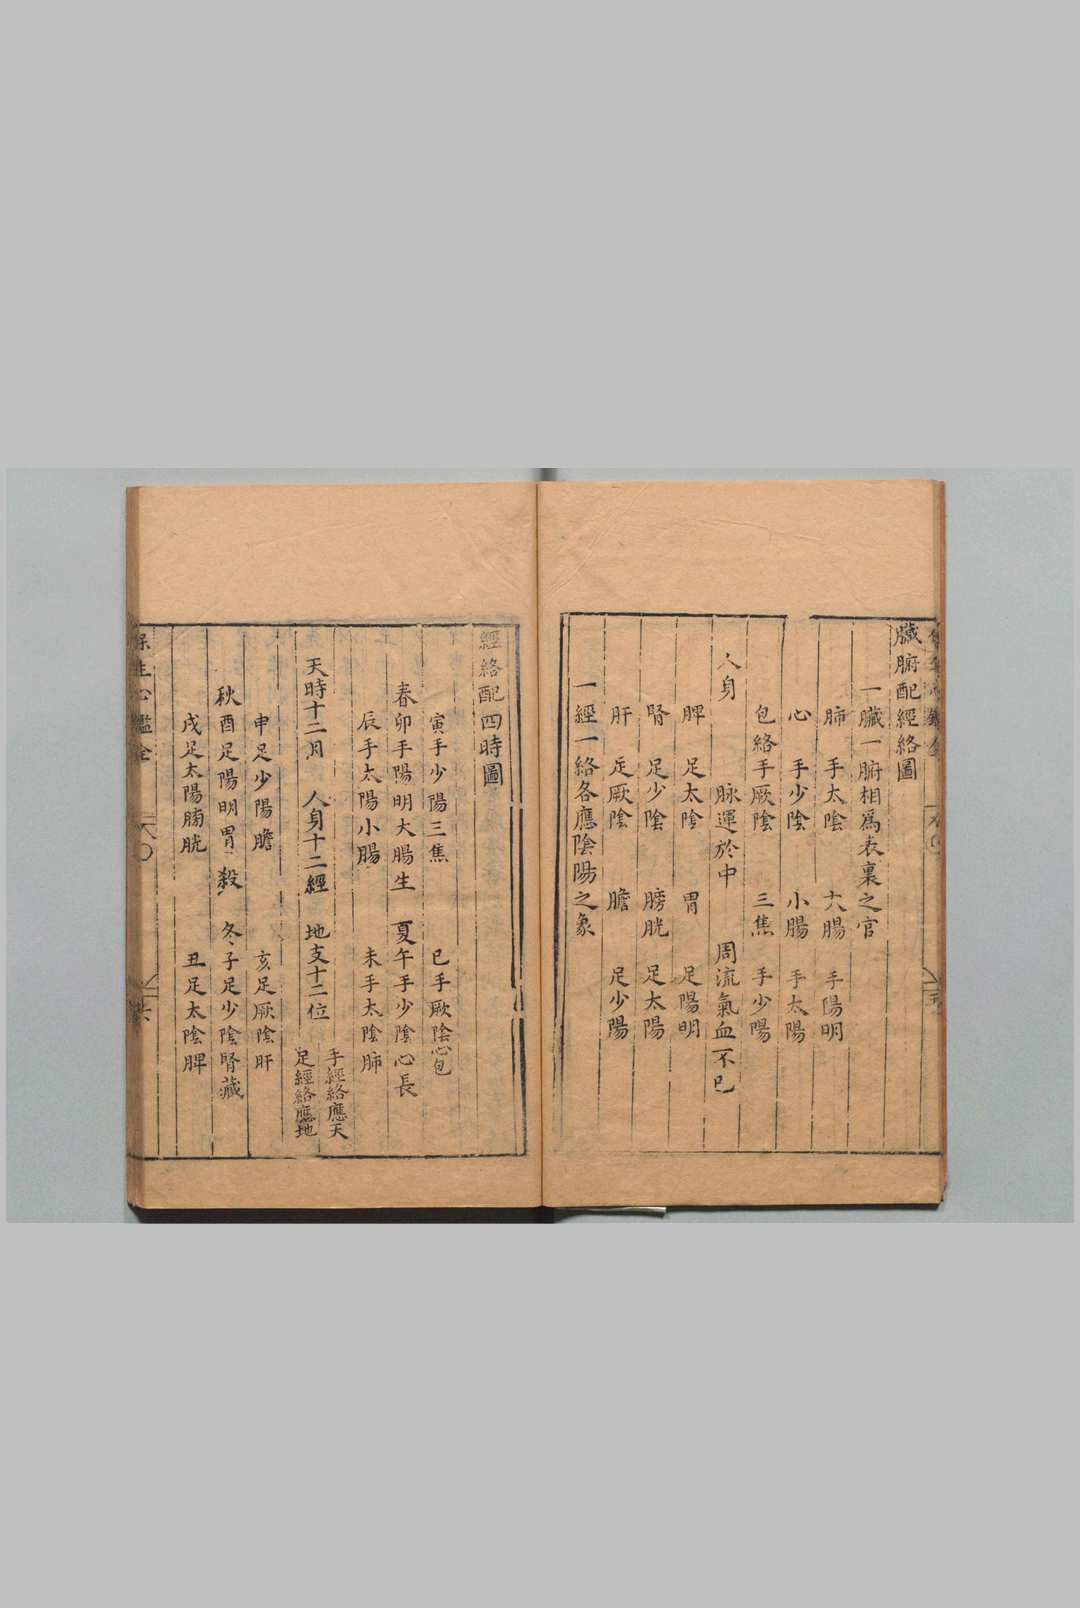 臟腑配經絡圖
一臟一腑相爲表裏之官
肺 手太陰 大腸 手陽明
心 手少陰 小腸 手太陽
包絡手厥陰 三焦 手少陽
人身 脉運於中 周流氣血不已
脾 足太陰 胃 足陽明
腎 足少陰 膀胱 足太陽
肝 足厥陰 膽 足少陽
一經一絡各應陰陽之象
經絡配四時圖
寅手少陽三焦 巳手厥陰心包
春卯手陽明大腸生 夏午手少陰心長
辰手太陽小腸 未手太陰肺
天時十二月 人身十二經 地支十二位 手經絡應天
足經絡應地
申足少陽膽 亥足厥陰肝
秋酉足陽明胃殺 冬子足少陰腎藏
戌足太陽膀胱 丑足太陰脾
保生心鑑全